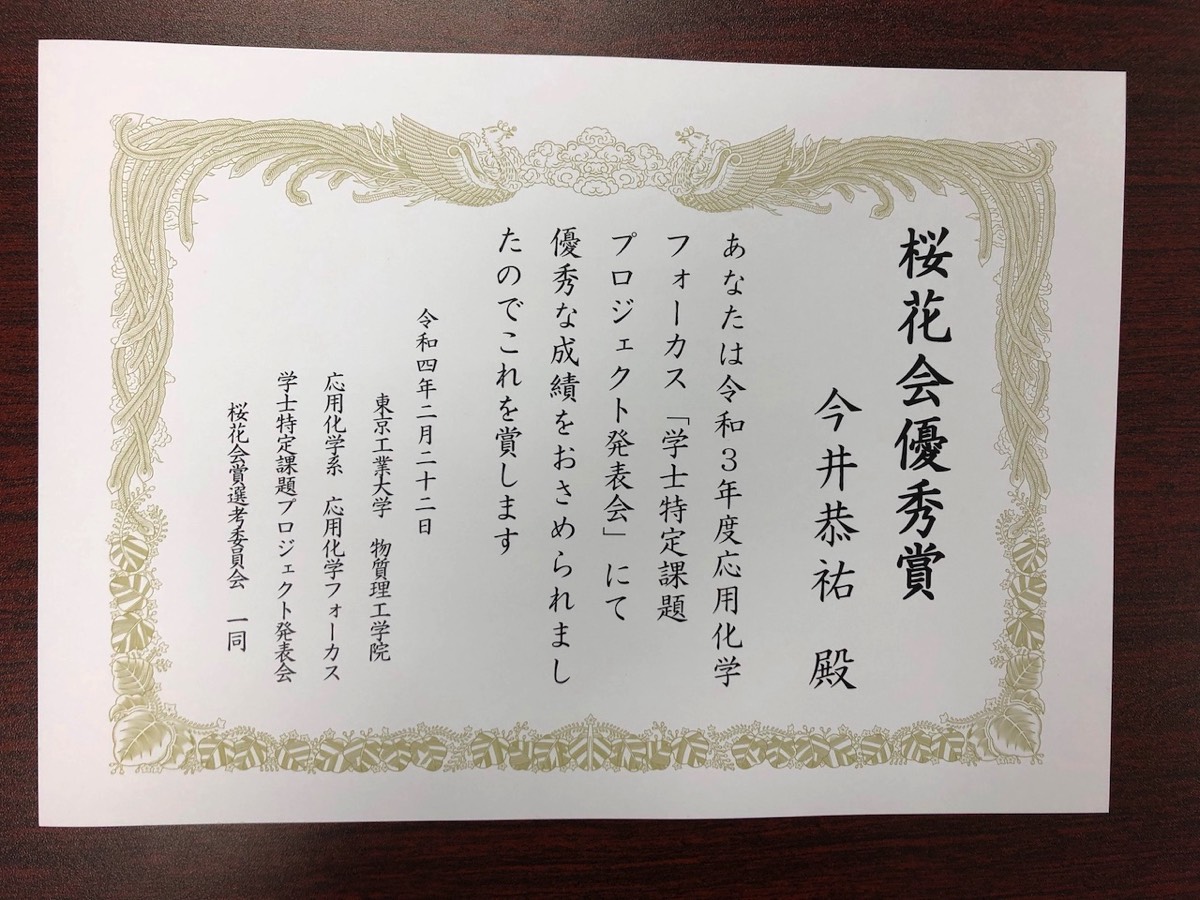 桜花会優秀賞
今井恭祐　殿
あなたは令和３年度応用化学
フォーカス「学士特定課題
プロジェクト発表会」にて
優秀な成績をおさめられまし
たのでこれを賞します
令和四年二月二十二日
東京工業大学　物質理工学院
応用化学系　応用化学フォーカス
学士特定課題プロジェクト発表会
桜花会賞選考委員会　一同